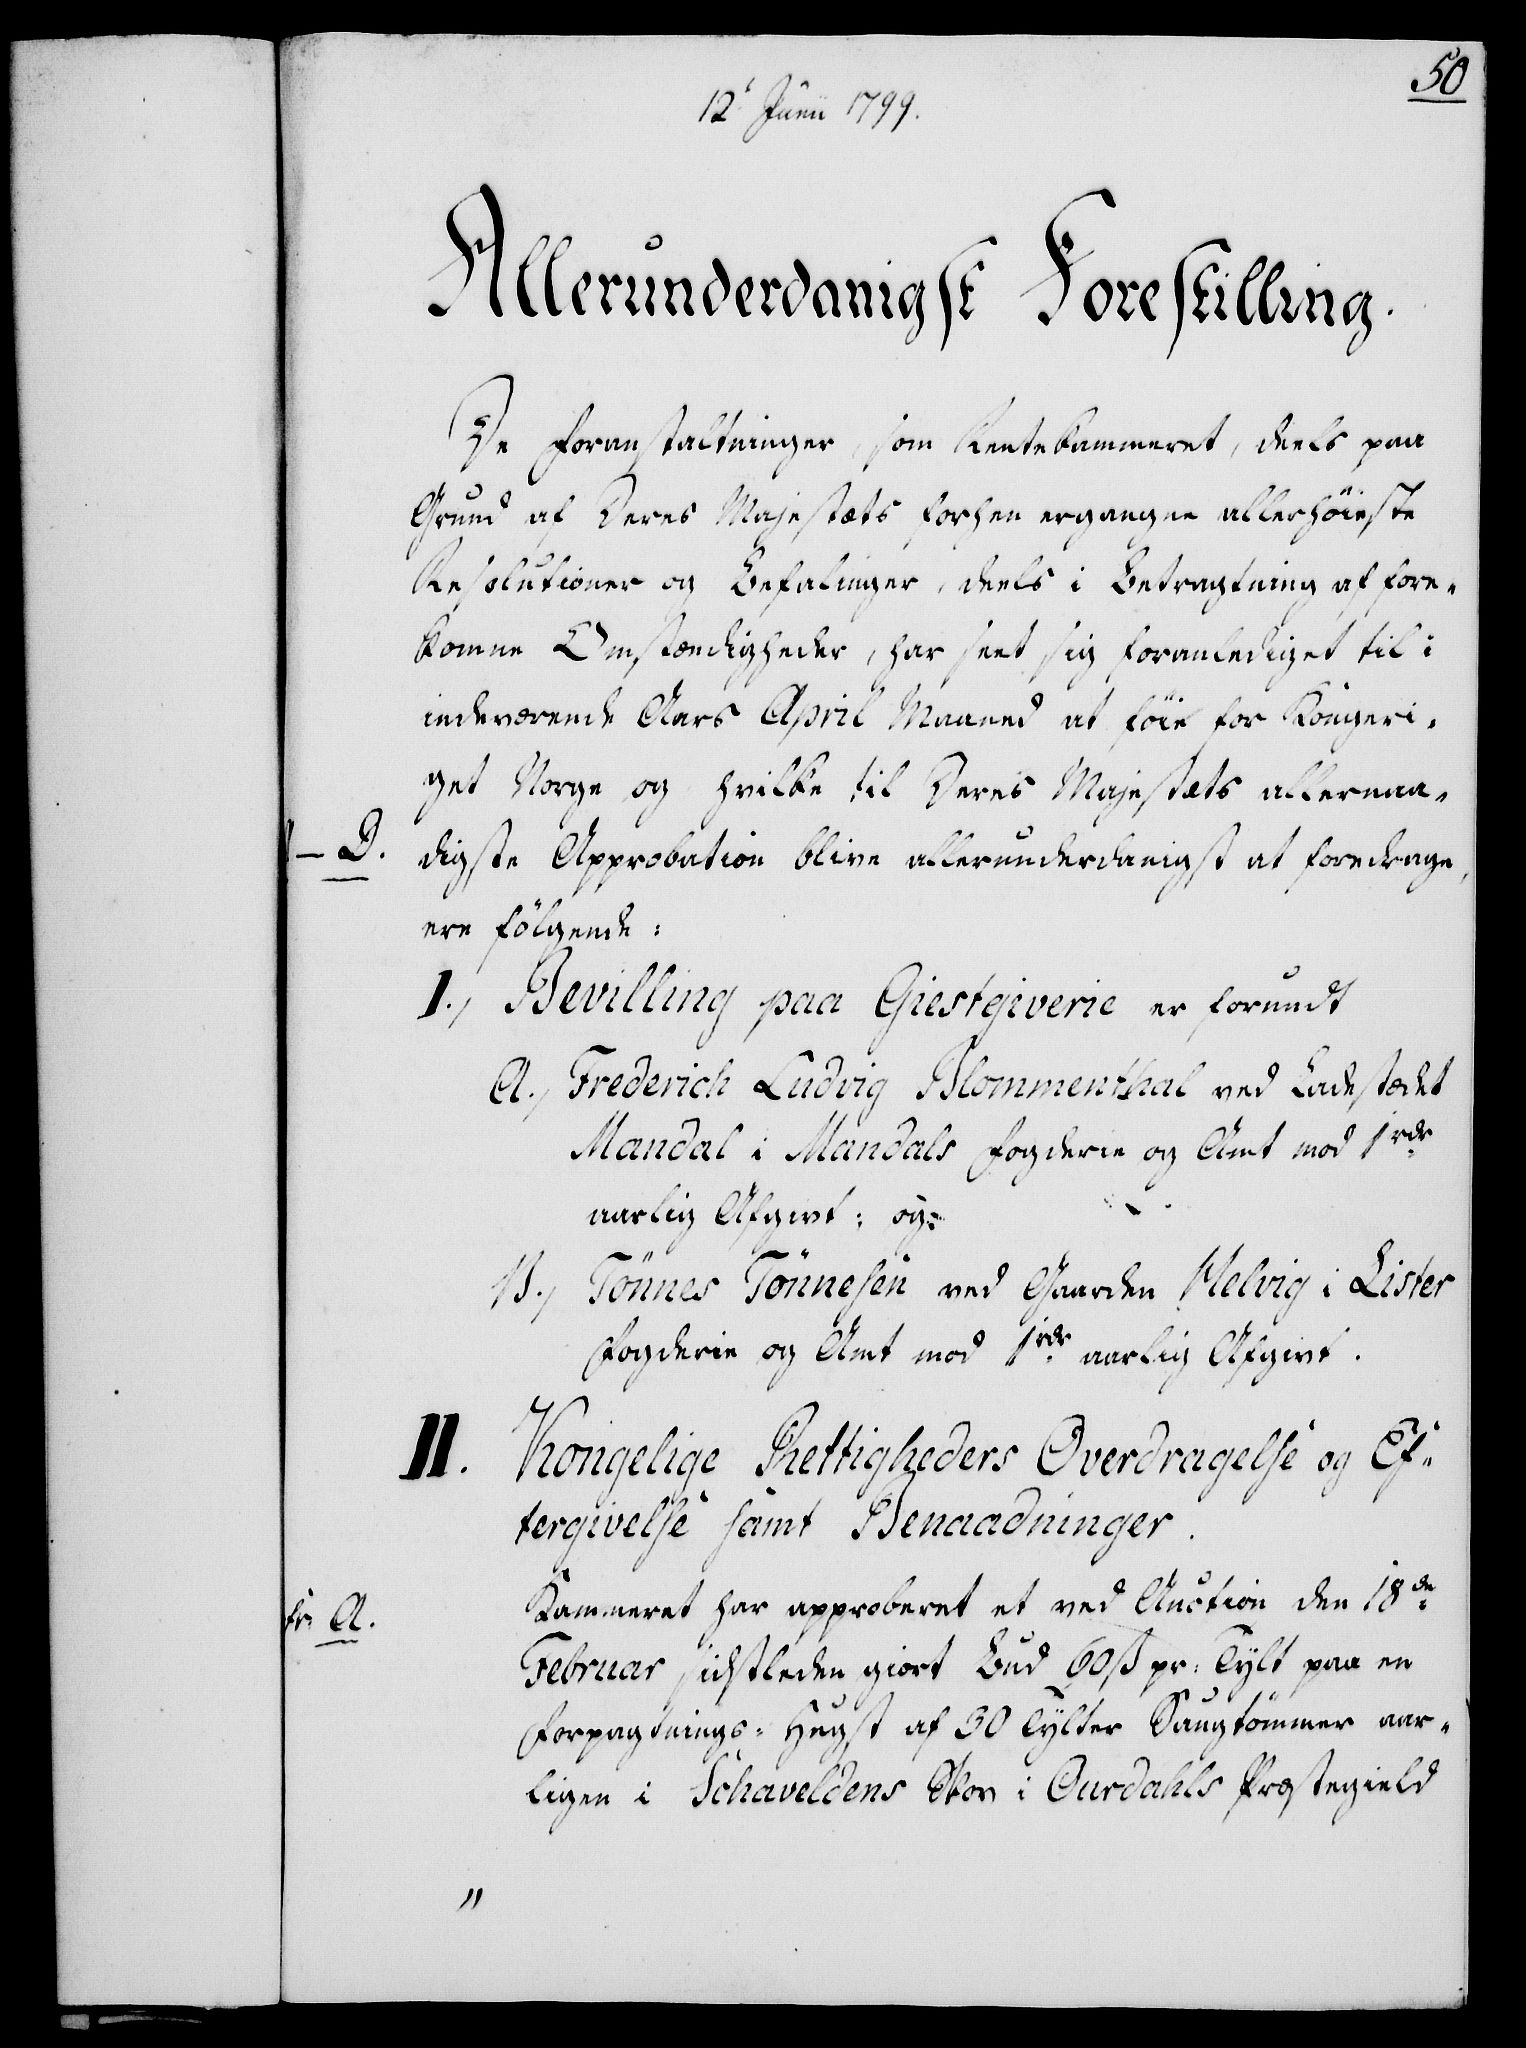 50
12t Junii 1799.
Allerunderdanigst Forestilling.
De Foranstaltninger, som Rentekammeret, deels paa
Grund af Deres Majestæts forhen ergangne allerhöieste
Resolutioner og Befalinger, deels i Betragtning af fore-
komne Omstændigheder, har seet sig foranlediget til i
indeværende Aars April Maaned at föie for Kongeri-
get Norge og hvilke til Deres Majestæts allernaa-
– D.
digste Approbation blive allerunderdanigst at foredrage,
ere fölgende:
I., Bevilling paa Giestgiverie er forundt
A., Frederich Ludvig Blommenthal ved Ladestædet
Mandal i Mandals Fogderie og Amt mod 1rdr
aarlig Afgivt: og
B., Tönnes Tönnesen ved Gaarden Helvig i Lister
Fogderie og Amt mod 1rdr aarlig Afgivt.
II. Kongelige Rettigheders Overdragelse og Ef-
tergivelse samt Benaadninger.
A.
Kammeret har approberet et ved Auction den 18de
Februar sidstleden giort Bud 60ß pr: Tylt paa en
Forpagtnings-Hugst af 30 Tylter Saugtömmer aar-
ligen i Schaveldens Skov i Ourdahls Præstegield
"